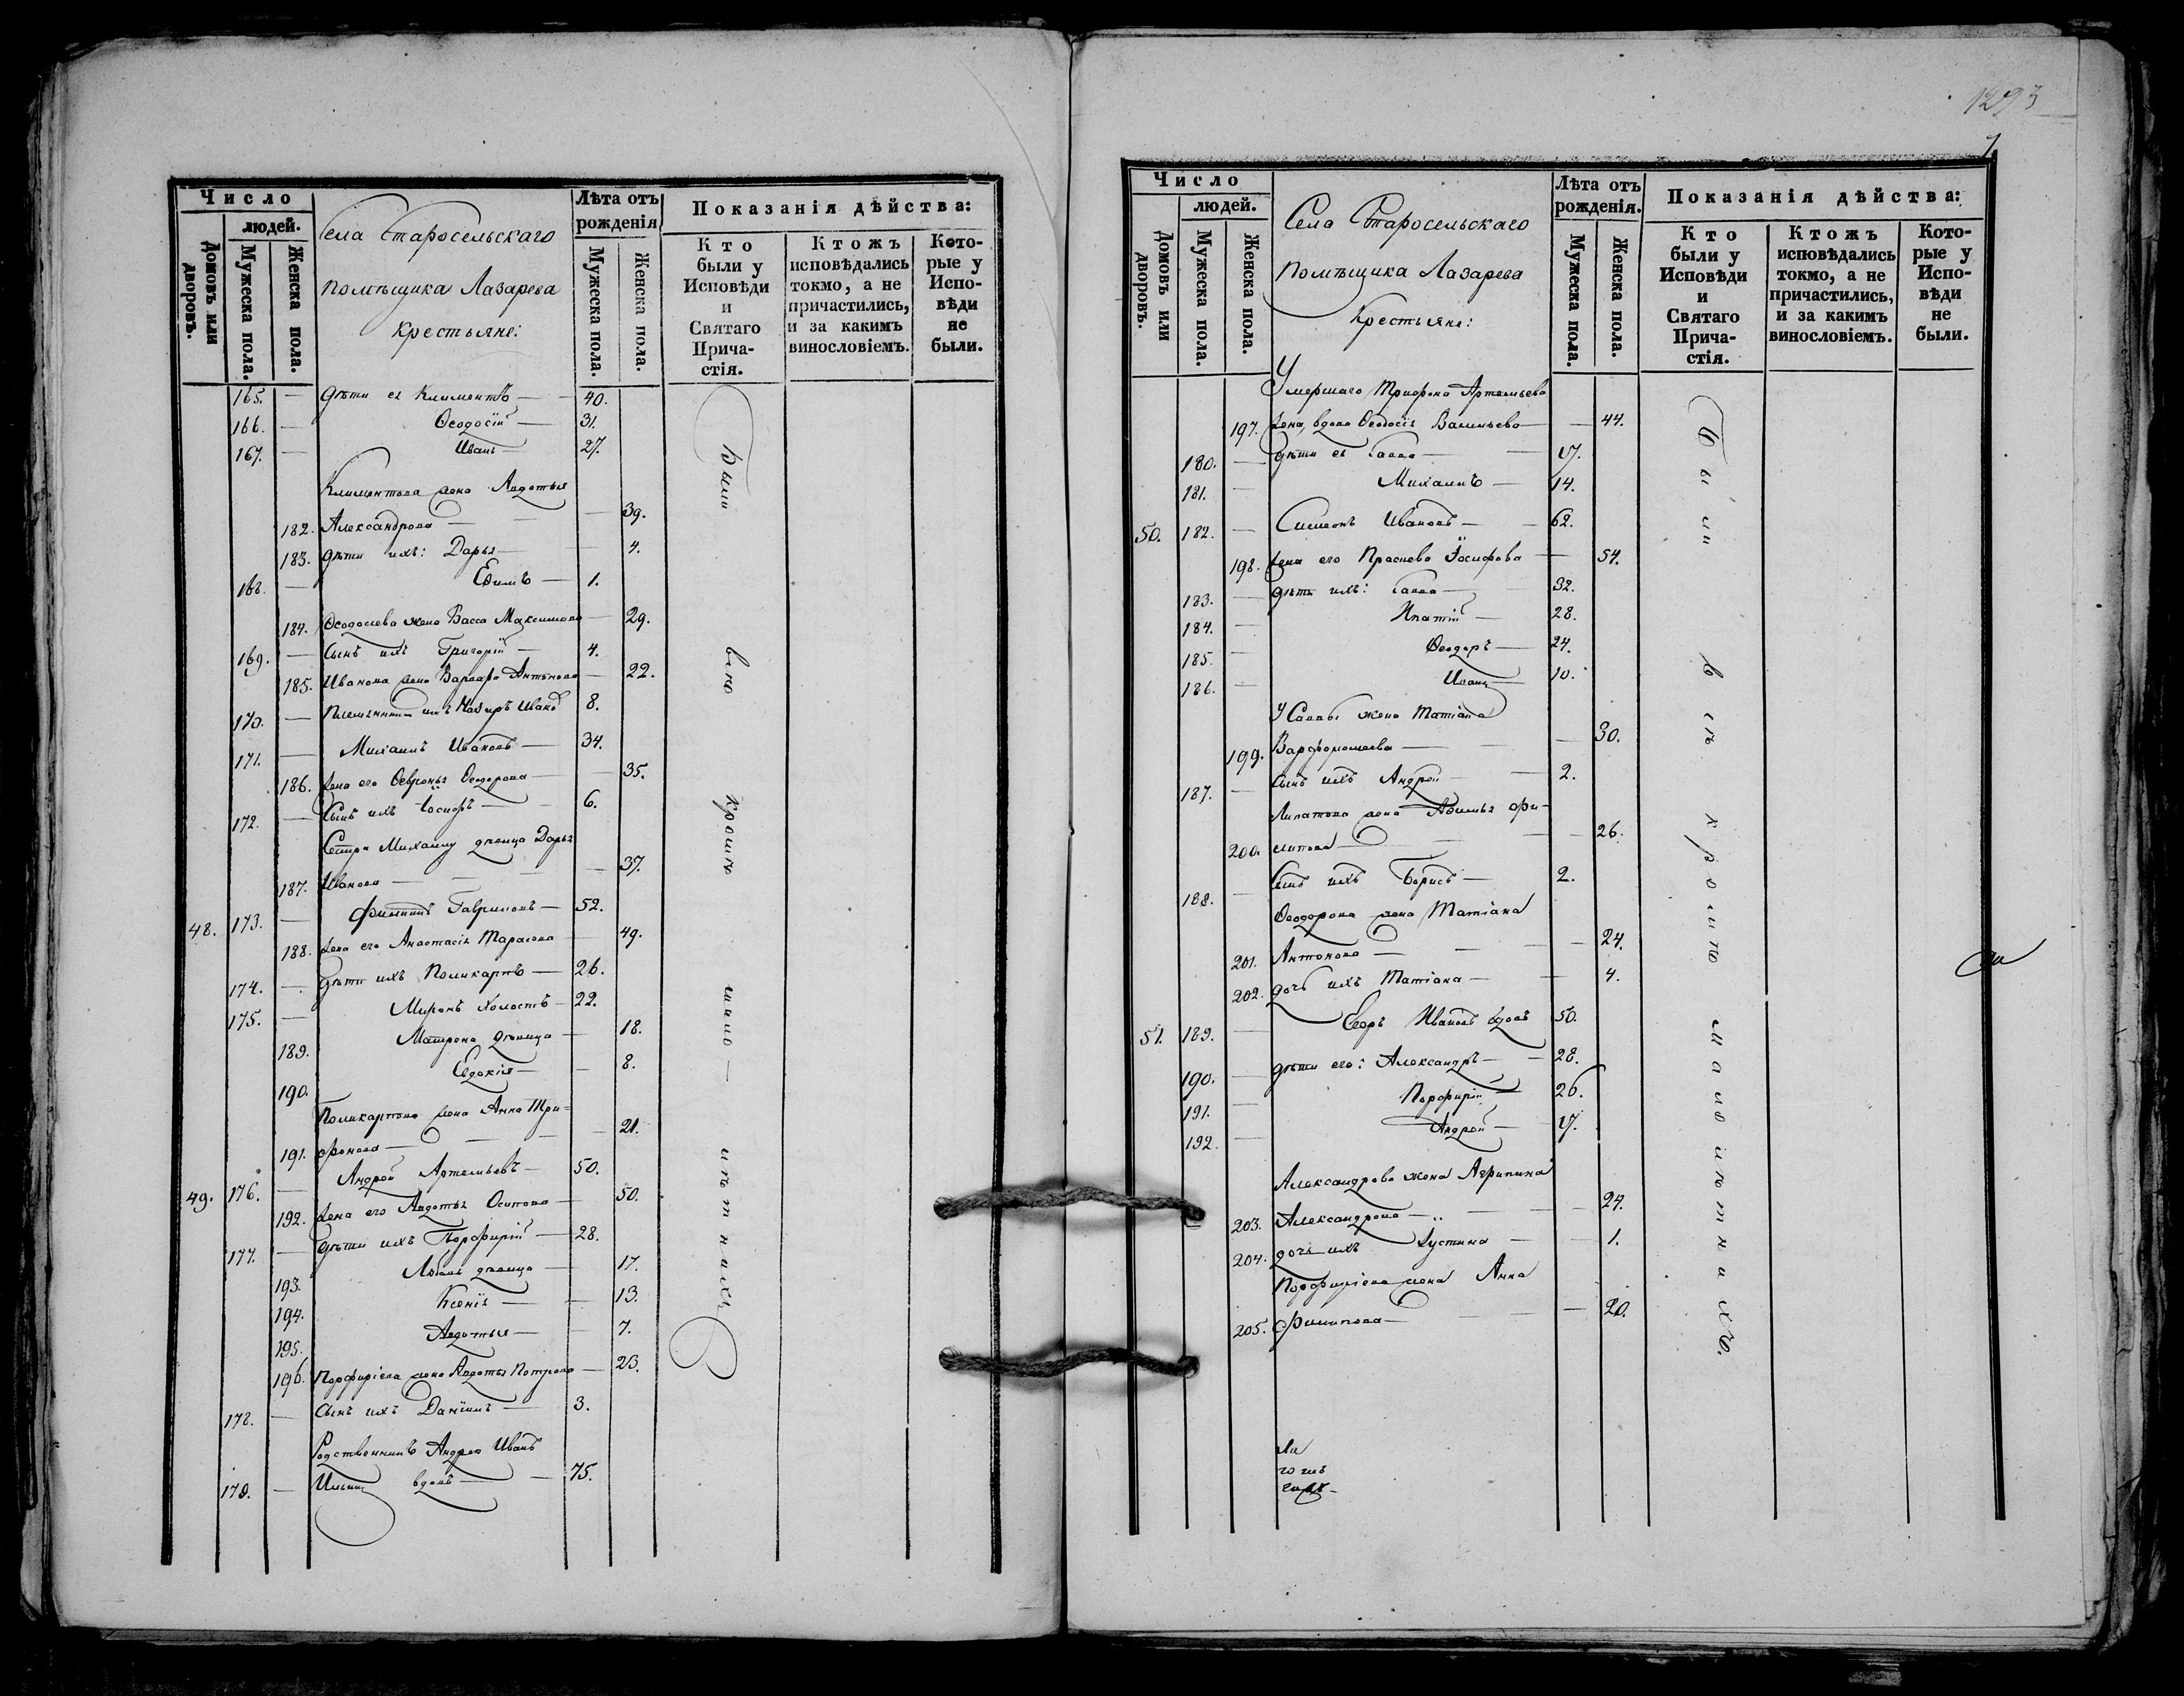 Число
людей.
Домовъ или дворовъ.
Мужеска пола.
Женска пола.
Села Старосельскаго
помѣщика Лазарева
крестьяне:
Лѣта отъ
рожденія
Мужеска пола.
Женска пола.
Показанія дѣйства:
Кто были у Исповѣди и Святаго Причастія.
Ктожъ исповѣдались токмо, а не причастились, и за какимъ винословіемъ.
Которые у Исповѣди не были.
165. — дѣти ея Климентъ — 40.
166. — Ѳеодосій — 31.
167. — Иванъ — 27.
Климентова жена Авдотья
182. Александрова — — 39.
183. дѣти ихъ: Дарья — — 4.
168. — Ефимъ — 1.
184. Ѳеодосіева жена Васса Максимова — 29.
169. — Сынъ ихъ Григорій — 4.
185. Иванова жена Варвара Антонова — 22.
170. — Племянникъ ихъ Иванъ 8.
171. — Михаилъ Ивановъ — 34.
186. Жена его Ѳевронья Ѳеодорова — — 35.
172. — Сынъ ихъ Іосифъ — 6.
Сестра Михаилу дѣвица Дарья
187. Иванова — — 37.
48. 173. — Филиппъ Гавриловъ — 52.
188. Жена его Анастасія Тарасова — 49.
174. — дѣти ихъ Поликарпъ — 26.
175. — Миронъ холостъ — 22.
189. Матрена дѣвица — 18.
190. Евдокія — — 8.
Поликарпова жена Анна Три-
191. фонова — — 21.
49. 176. — Андрей Артемьевъ — 50.
192. Жена его Авдотья Осипова — 50.
177. — дѣти ихъ Порфирій — 28.
193. Любовь дѣвица — 17.
194. Ксенія — — 13.
195. Авдотья — — 7.
196. Порфиріева жена Авдотья Петрова — 23.
178. — Сынъ ихъ Даніилъ — 3.
Родственникъ Андрея Иванъ
179. — Ильинъ вдовъ — — 75.
Были всѣ кромѣ малолѣтнихъ
1293
7.
Число
людей.
Домовъ или дворовъ.
Мужеска пола.
Женска пола.
Села Старосельскаго
помѣщика Лазарева
Крестьяне:
Лѣта отъ
рожденія.
Мужеска пола.
Женска пола.
Показанія дѣйства:
Кто были у Исповѣди и Святаго Причастія.
Ктожъ исповѣдались токмо, а не причастились, и за какимъ винословіемъ.
Которые у Исповѣди не были.
Умершаго Трифона Артемьева
197. Жена, вдова Ѳеодосія Васильева — — 44.
180. — дѣти ея Савва — — 17.
181. — Михаилъ — 14.
50. 182. — Симеонъ Ивановъ — — 62.
198. Жена его Прасковья Іосифова — 54.
183. — дѣти ихъ: Савва — 32.
184. — Ипатій — 28.
185. — Ѳеодоръ — 24.
186. — Иванъ — 10.
У Саввы жена Матіана
199. Варфоломеева — — 30.
187. — Сынъ ихъ Андрей — — 2.
Ипатова жена Афимья Фи-
200. липова — — 26.
188. — Сынъ ихъ Борисъ — 2.
Ѳеодорова жена Матіана
201. Антонова — — — 24.
202. дочь ихъ Матіана — — 4.
51. 189. — Егоръ Ивановъ вдовъ 50.
190. — дѣти его: Александръ — — 28.
191. — Порфирій — 26.
192. — Андрей — 17.
Александрова жена Агрипина
203. Александрова — — — 24.
204. дочь ихъ Іустина — — 1.
Порфиріева жена Анна
205. Филипова — — — 20.
Были всѣ кромѣ малолѣтнихъ.